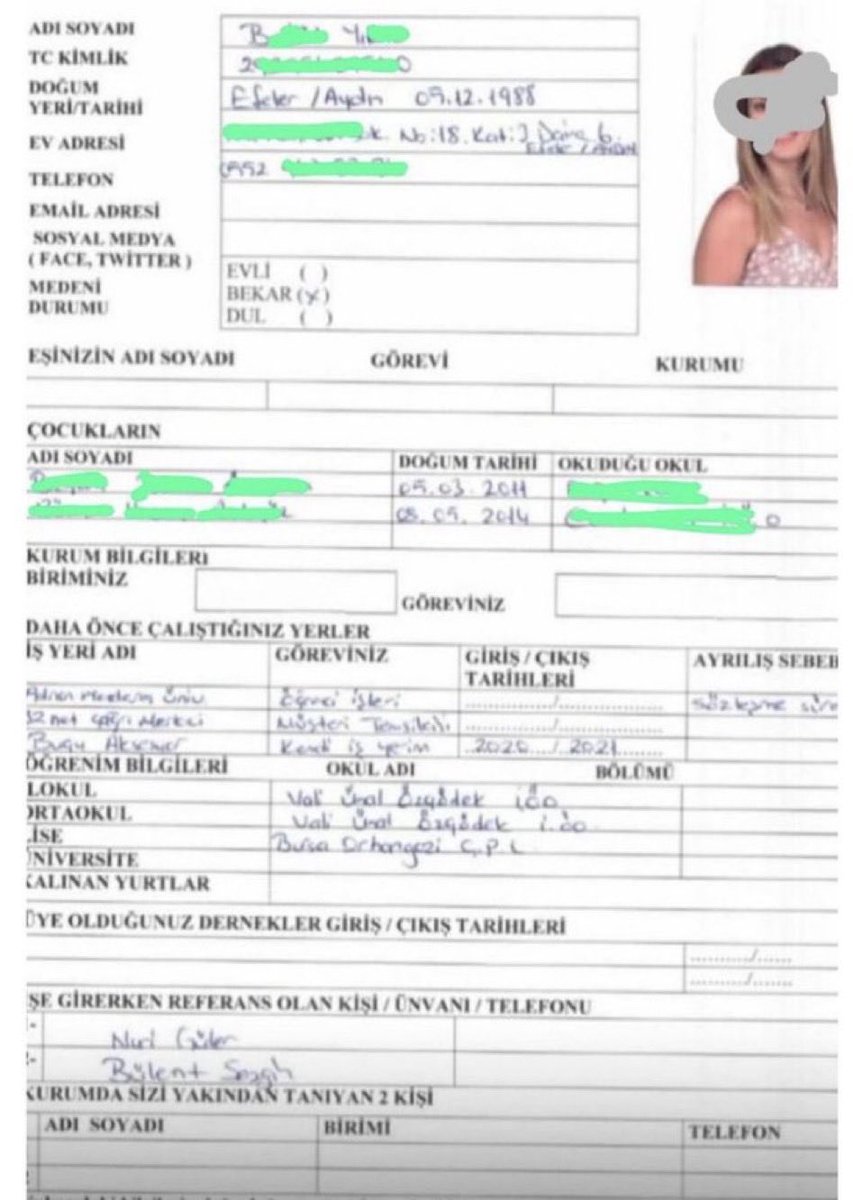 ADI SOYADI
TC KİMLİK
DOĞUM YERİ/TARİHİ Efeler / Aydın 09.12.1988
EV ADRESİ No:18. Kat:3 Daire 6. Efeler / AYDIN
TELEFON
EMAİL ADRESİ
SOSYAL MEDYA
( FACE, TWITTER )
MEDENİ DURUMU
EVLİ ( )
BEKAR (x)
DUL ( )
EŞİNİZİN ADI SOYADI GÖREVİ KURUMU
ÇOCUKLARIN
ADI SOYADI DOĞUM TARİHİ OKUDUĞU OKUL
05.03.2011
08.05.2014
KURUM BİLGİLERI
BİRİMİNİZ GÖREVİNİZ
DAHA ÖNCE ÇALIŞTIĞINIZ YERLER
İŞ YERİ ADI GÖREVİNİZ GİRİŞ / ÇIKIŞ TARİHLERİ AYRILIŞ SEBEB
Adnan Menderes Üniv. Öğrenci işleri ............/............ sözleşme
çağrı Merkezi Müşteri Temsilcisi ............/............
Aksesuar Kendi iş yerim 2020 / 2021
ÖĞRENİM BİLGİLERİ OKUL ADI BÖLÜMÜ
LOKUL Vali Ünal Özgödek İ.Ö.O.
ORTAOKUL Vali Ünal Özgödek İ.Ö.O.
LİSE Bursa Orhangazi Ç.P.L
ÜNİVERSİTE
KALINAN YURTLAR
ÜYE OLDUĞUNUZ DERNEKLER GİRİŞ / ÇIKIŞ TARİHLERİ
........./......
........./......
ŞE GİRERKEN REFERANS OLAN KİŞİ / ÜNVANI / TELEFONU
Nuri Güler
Bülent Sezgin
KURUMDA SİZİ YAKINDAN TANIYAN 2 KİŞİ
ADI SOYADI BİRİMİ TELEFON